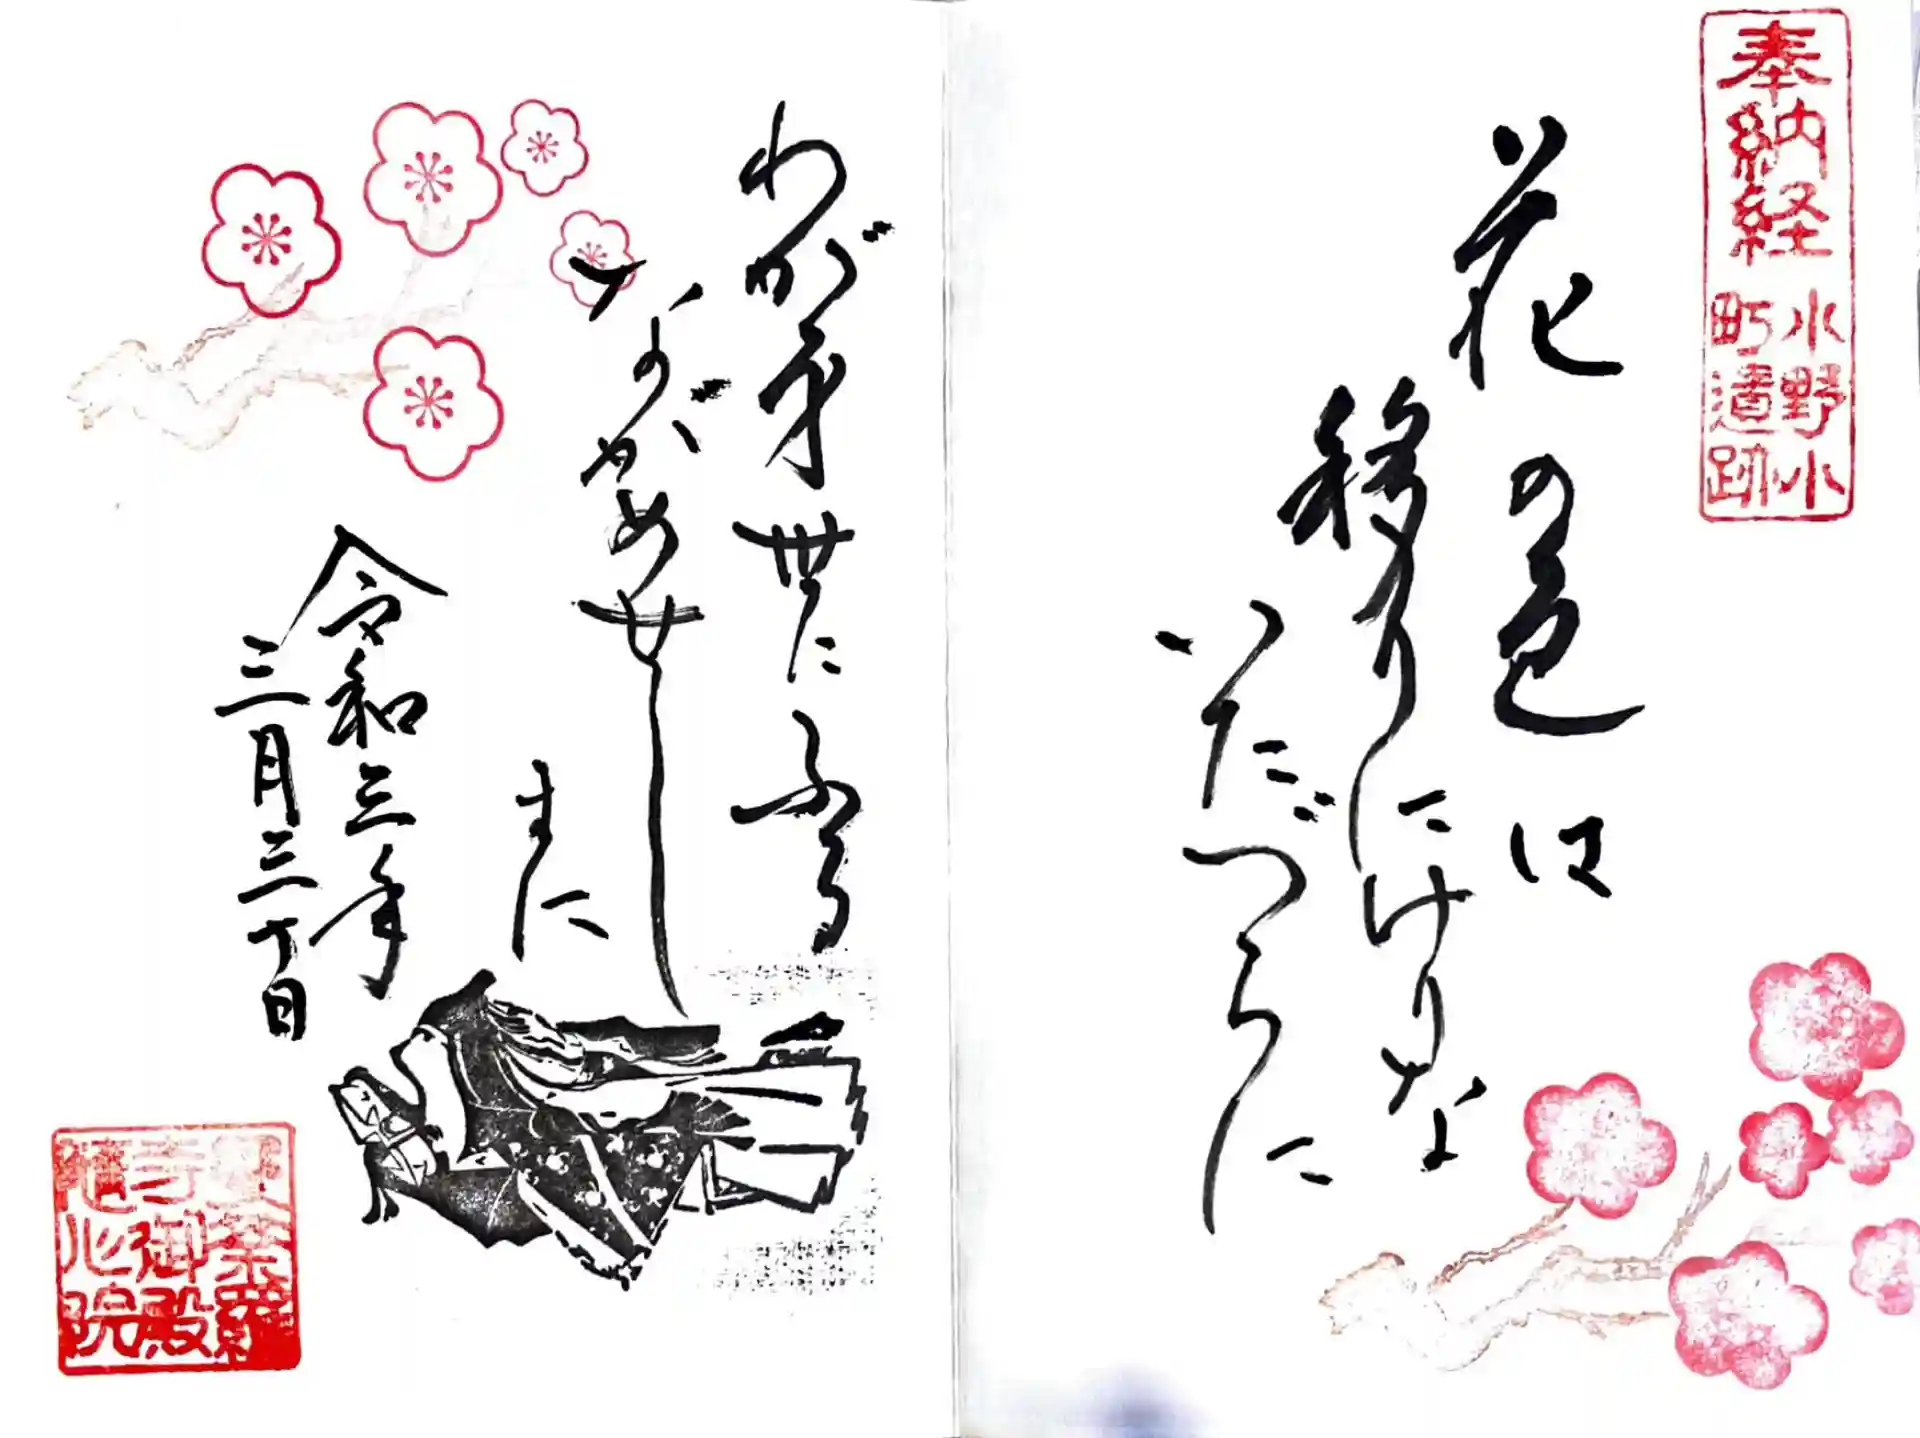 奉納経
小野小
町遺跡
花の色は
移りにけりな
いたづらに
わが身世にふる
ながめせし
まに
令和三年
三月三十日
曼荼羅
寺御殿
隨心院